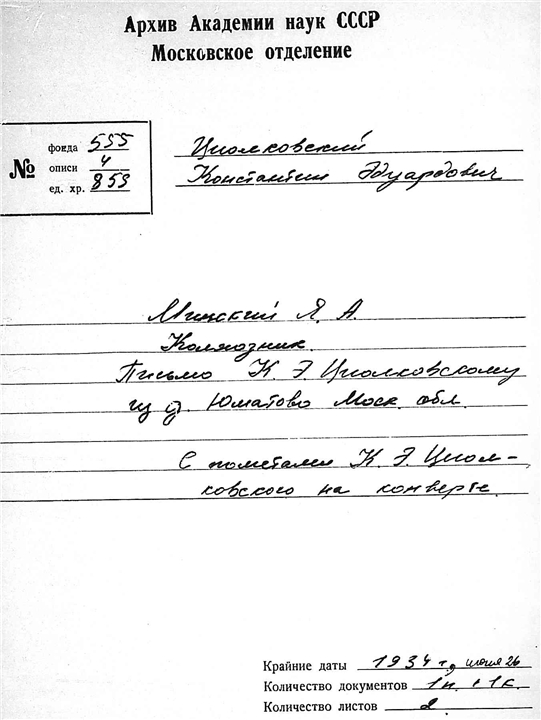 Архив Академии наук СССР
Московское отделение
№
фонда 555
описи 4
ед. хр. 853
Циолковский
Константин Эдуардович
Минский Я. А.
Колхозник.
Письмо К. Э. Циолковскому
из д. Юматово Моск. обл.
С пометами К. Э. Циол-
ковского на конверте.
Крайние даты 1934 г., июня 26
Количество документов 1п. + 1к.
Количество листов 2